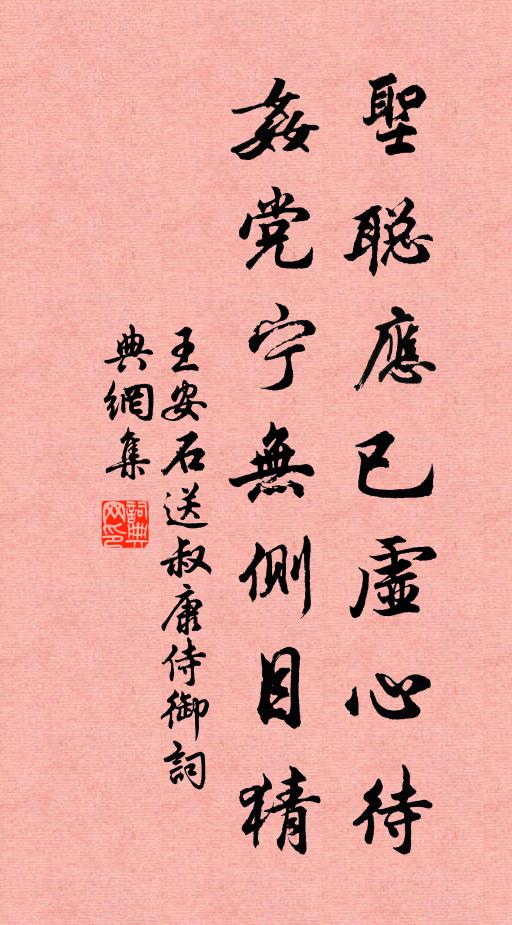 聖聡應已虛心待
姦党宁無側目猜
王安石送叔康侍御詞
典網集
詞典網印